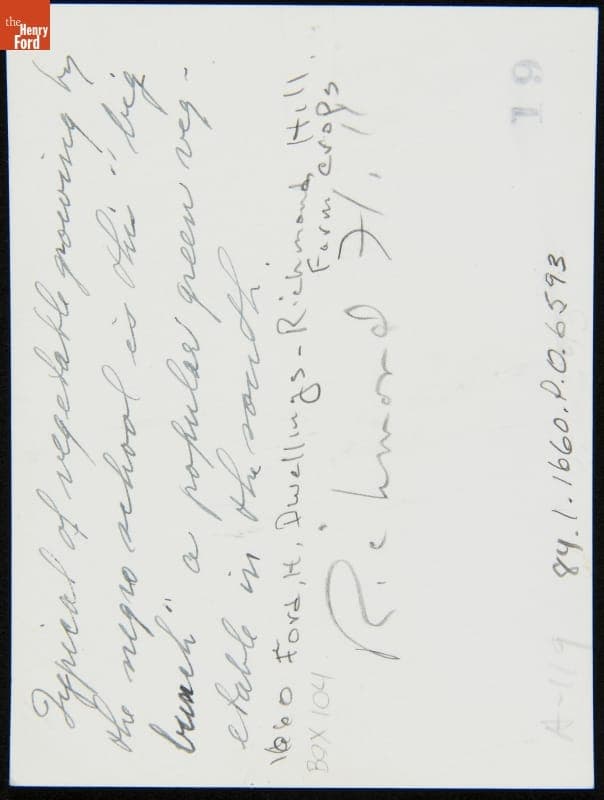 the Henry Ford
Typical of vegetable growing by
the negro school is this "big
bunch" a popular green veg-
etable in the south
1660 Ford, H. Dwellings - Richmond Hill
Farm crops
BOX 104
Richmond H.
84.1.1660.P.O.6593
A-119
19